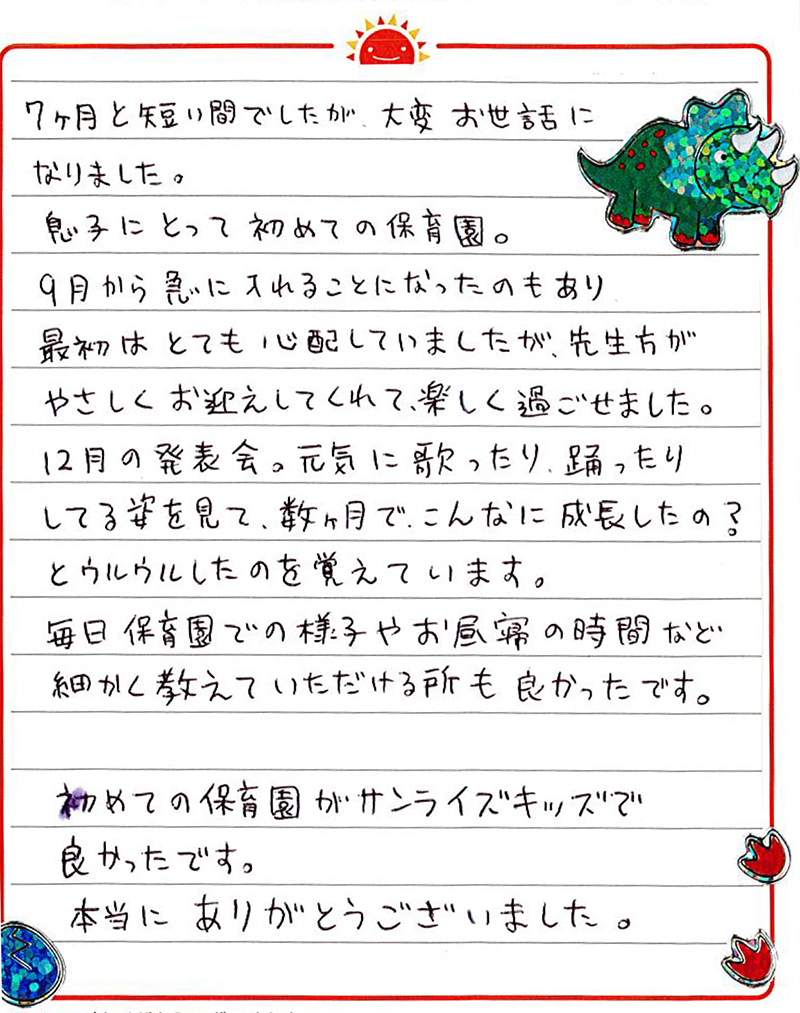 7ヶ月と短い間でしたが、大変 お世話に
なりました。
息子にとって 初めての保育園。
9月から 急に入れることになったのもあり
最初は とても 心配していましたが、先生方が
やさしく お迎えしてくれて、楽しく 過ごせました。
12月の発表会。元気に歌ったり、踊ったり
してる姿を見て、数ヶ月で、こんなに成長したの?
とウルウルしたのを覚えています。
毎日 保育園での様子やお昼寝の時間など
細かく教えていただける所も良かったです。
初めての保育園がサンライズキッズで
良かったです。
本当に ありがとうございました。